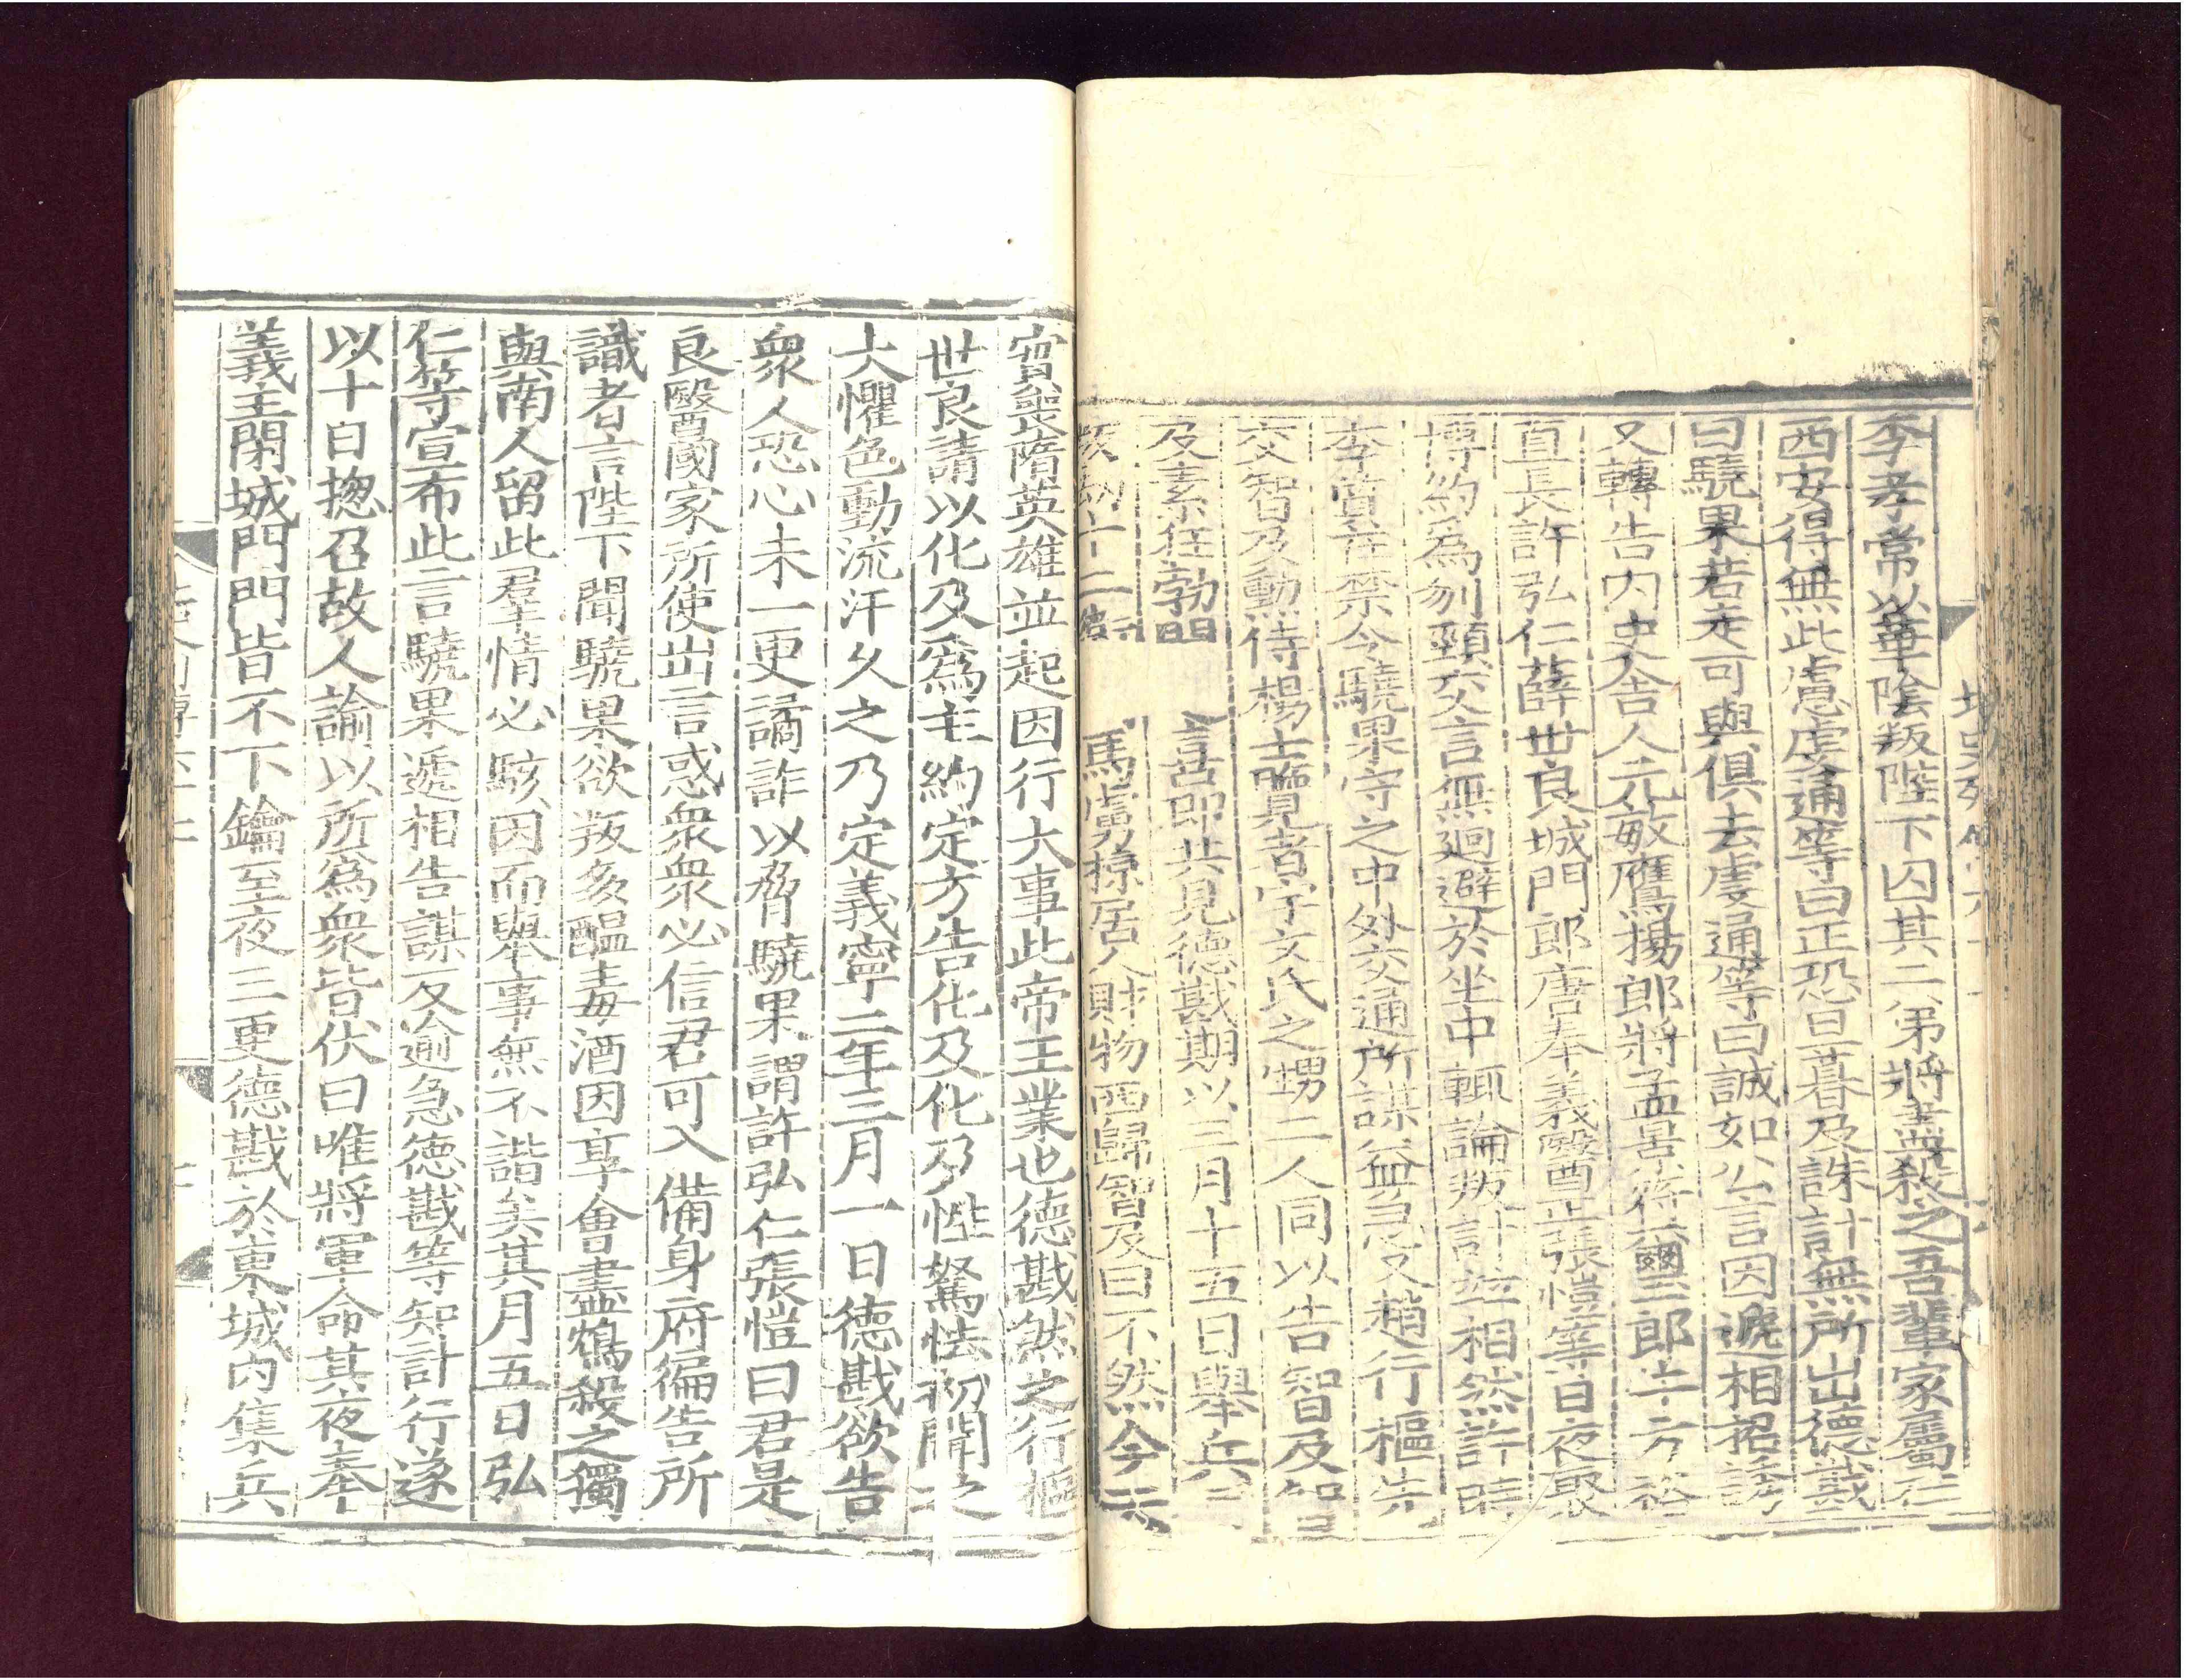 李孝常以華陰叛陛下囚其二弟將盡殺之吾輩家屬在
西安得無此慮虔通等曰正恐旦暮及誅計無所出德戡
曰驍果若走可與俱去虔通等曰誠如公言因遞相招誘
又轉告内史舍人元敏鷹揚郎將孟景符璽郎牛方裕
直長許弘仁薛世良城門郎唐奉義醫正張愷等日夜聚
博約爲刎頸交言無迴避於坐中輒論叛計並相然許時
李質在禁令驍果守之中外交通所謀益急又趙行樞先
交智及勳侍楊士覽者宇文氏之甥二人同以告智及智
及素狂勃聞 喜即共見德戡期以三月十五日舉兵
叛劫十二衛 馬虜掠居人財物西歸智及曰不然今
實喪隋英雄並起因行大事此帝王業也德戡然之行樞
世良請以化及爲主約定方告化及化及性駑怯初聞之
大懼色動流汗久之乃定義寧二年三月一日德戡欲告
衆人恐心未一更譎詐以脅驍果謂許弘仁張愷曰君是
良醫國家所使出言惑衆衆必信君可入備身府徧告所
識者言陛下聞驍果欲叛多醞毒酒因享會盡鴆殺之獨
與南人留此羣情必駭因而舉事無不諧矣其月五日弘
仁等宣布此言驍果遞相告謀反逾急德戡等知計行遂
以十日揔召故人諭以所爲衆皆伏曰唯將軍命其夜奉
義主閉城門門皆不下鑰至夜三更德戡於東城内集兵